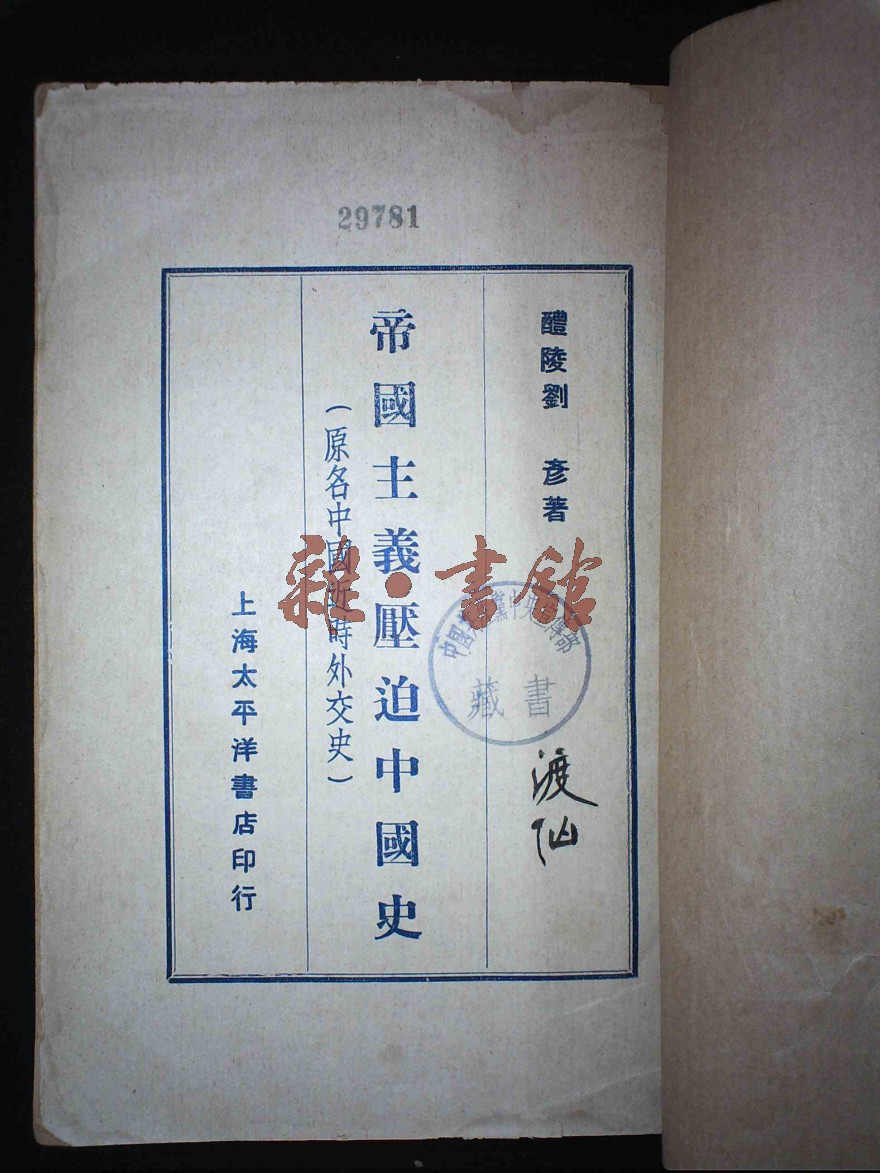 29781
醴陵劉 彥著
帝國主義壓迫中國史
(原名中國近時外交史)
上海太平洋書店印行
雜·書館
藏書
渡仙